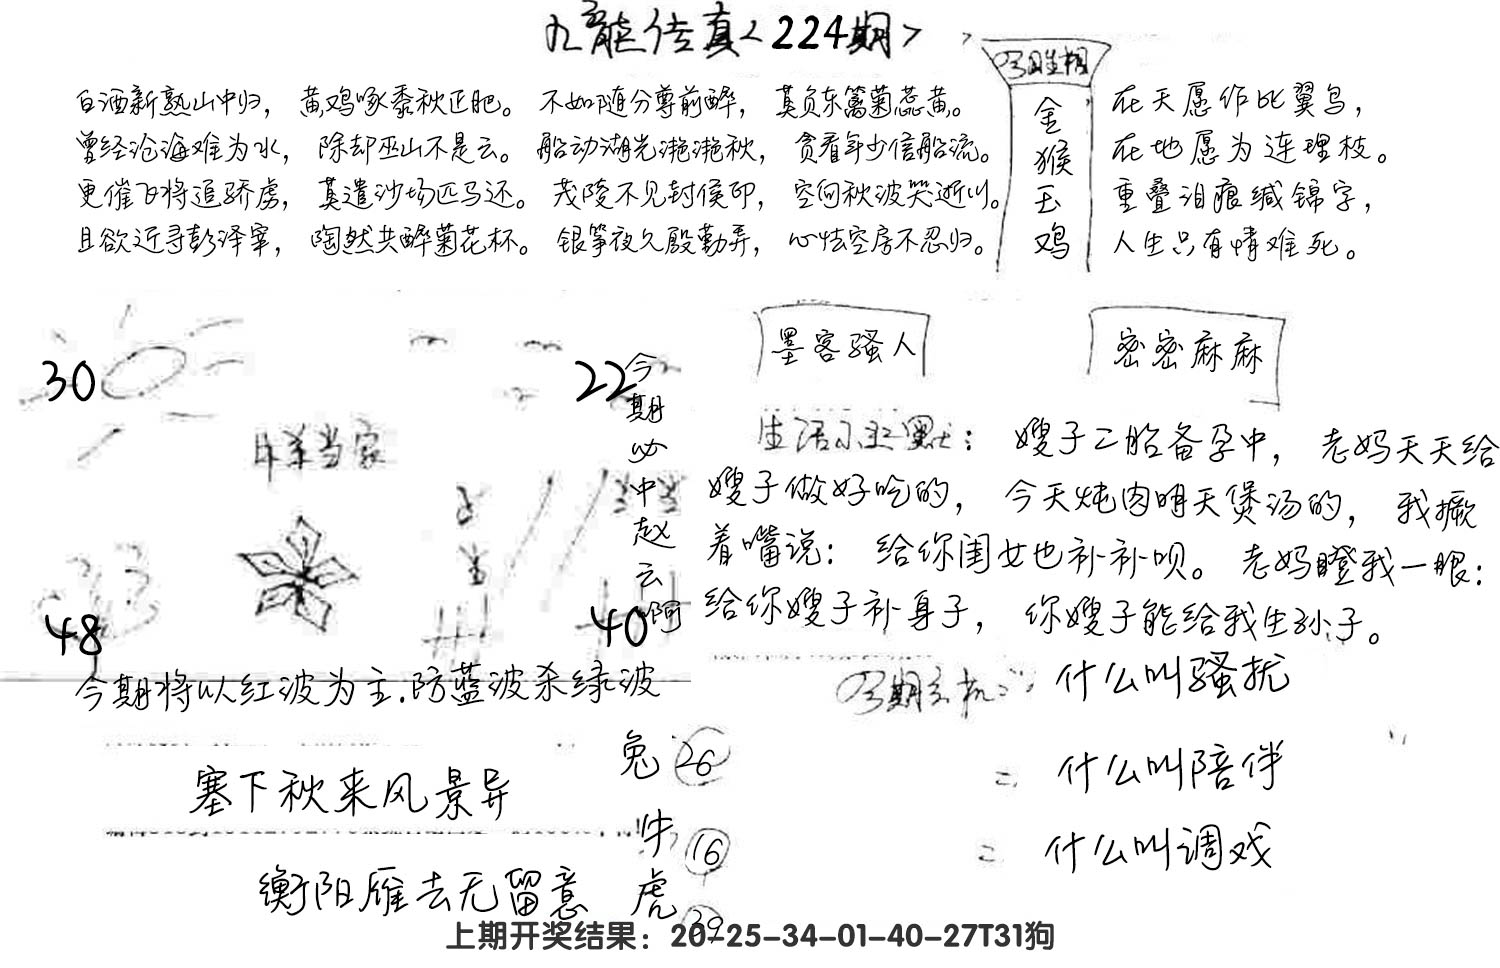 九龙传真<224期>
白酒新熟山中归，黄鸡啄黍秋正肥。不如随分尊前醉，莫负东篱菊蕊黄。
曾经沧海难为水，除却巫山不是云。船动湖光滟滟秋，贪看年少信船流。
更催飞将追骄虏，莫遣沙场匹马还。茂陵不见封侯印，空向秋波哭逝川。
且欲近寻彭泽宰，陶然共醉菊花杯。银筝夜久殷勤弄，心怯空房不忍归。
金
猴
玉
鸡
在天愿作比翼鸟，
在地愿为连理枝。
重叠泪痕缄锦字，
人生只有情难死。
30
22
48
40
今期必中赵云啊
今期将以红波为主.防蓝波杀绿波
墨客骚人
密密麻麻
生活小幽默：嫂子二胎备孕中，老妈天天给
嫂子做好吃的，今天炖肉明天煲汤的，我撅
着嘴说：给你闺女也补补呗。老妈瞪我一眼：
给你嫂子补身子，你嫂子能给我生孙子。
什么叫骚扰
什么叫陪伴
什么叫调戏
塞下秋来风景异
衡阳雁去无留意
兔 26
牛 16
虎 39
上期开奖结果：20-25-34-01-40-27T31狗